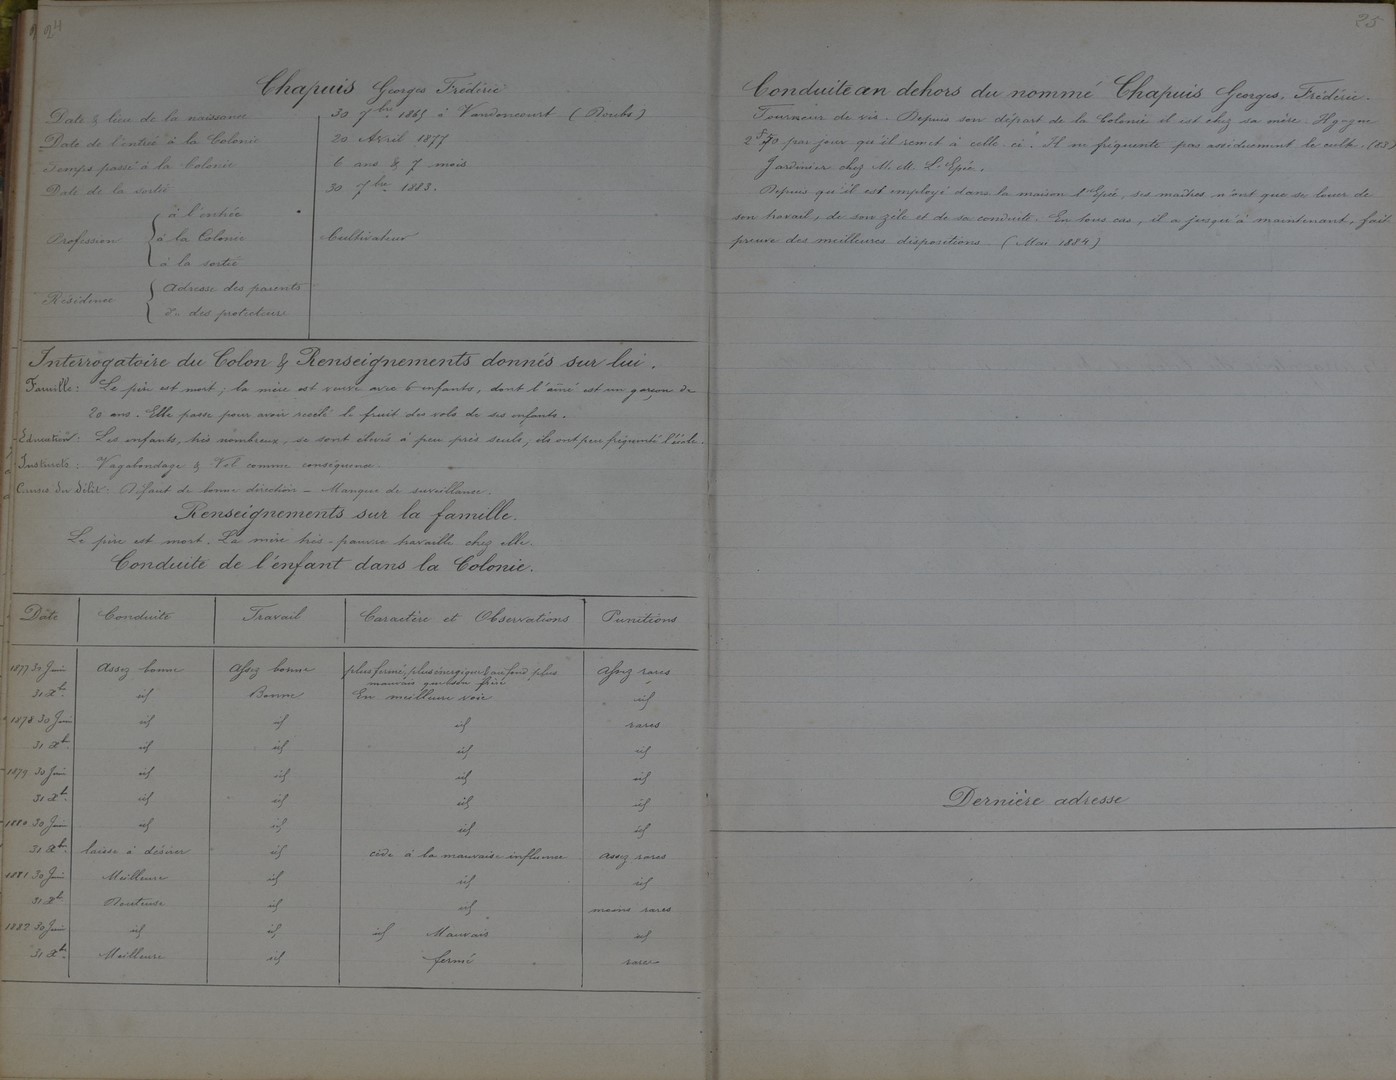 24
Chapuis Georges Frédéric
Date & lieu de la naissance 30 7bre 1865 à Vandoncourt (Doubs)
Date de l'entrée à la Colonie 20 Avril 1877
Temps passé à la Colonie 6 ans & 7 mois
Date de la sortie 30 7bre 1883.
Profession
à l'entrée
à la Colonie Cultivateur
à la sortie
Résidence
Adresse des parents
des protecteurs
Interrogatoire du Colon & Renseignements donnés sur lui.
Famille: Le père est mort; la mère est veuve avec 6 enfants, dont l'aîné est un garçon de
20 ans. Elle passe pour avoir recélé le fruit des vols de ses enfants.
Education: Les enfants, très nombreux, se sont élevés à peu près seuls, ils ont peu fréquenté l'école.
Instincts: Vagabondage & Vol comme conséquence.
Causes du délit: Défaut de bonne direction - Manque de surveillance.
Renseignements sur la famille.
Le père est mort. La mère très-pauvre travaille chez elle.
Conduite de l'enfant dans la Colonie.
Date Conduite Travail Caractère et Observations Punitions
1877 30 Juin Assez bonne Assez bonne plus fermé, plus énergique & au fond plus Assez rares
mauvais que son frère
31 Xbre id Bonne En meilleure voie id
1878 30 Juin id id id rares
31 Xbre id id id id
1879 30 Juin id id id id
31 Xbre id id id id
1880 30 Juin id id id id
31 Xbre laisse à désirer id cède à la mauvaise influence assez rares
1881 30 Juin Meilleure id id id
31 Xbre Douteuse id id moins rares
1882 30 Juin id id id Mauvais id
31 Xbre Meilleure id fermé rares
25
Conduite au dehors du nommé Chapuis Georges, Frédéric.
Tourneur de vis. Depuis son départ de la Colonie il est chez sa mère. Il gagne
par jour qu'il remet à celle-ci. Il ne fréquente pas assidûment le culte. (83)
Jardinier chez M. M. L'Epée.
Depuis qu'il est employé dans la maison l'Epée, ses maîtres n'ont que se louer de
son travail, de son zèle et de sa conduite. En tous cas, il a jusqu'à maintenant, fait
preuve des meilleures dispositions. (Mai 1884)
Dernière adresse